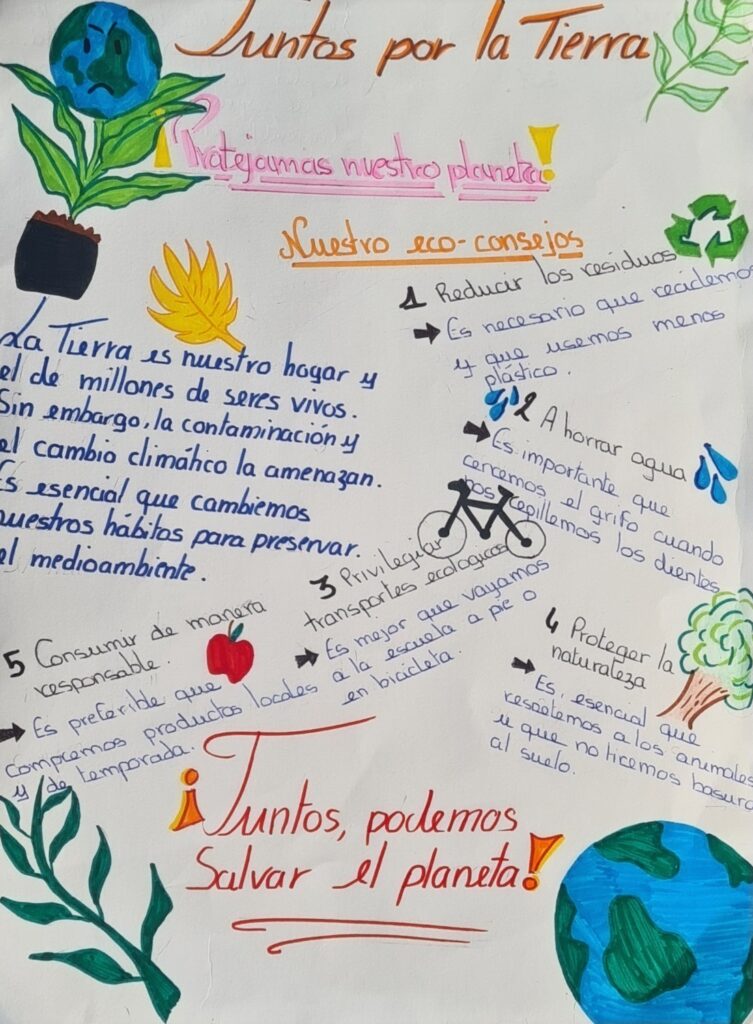 Juntos por la Tierra
¡Protejamos nuestro planeta!
Nuestro eco-consejos
La Tierra es nuestro hogar y
el de millones de seres vivos.
Sin embargo, la contaminación y
el cambio climático la amenazan.
Es esencial que cambiemos
nuestros hábitos para preservar.
el medioambiente.
1 Reducir los residuos
Es necesario que reciclemos
y que usemos menos
plástico.
2 Ahorrar agua
Es importante que
cerremos el grifo cuando
nos cepillemos los dientes
3 Privilegiar
transportes ecologicos
Es mejor que vayamos
a la escuela a pie o
en bicicleta.
4 Proteger la
naturaleza
Es esencial que
respetemos a los animales
y que no tiremos basura
al suelo.
5 Consumir de manera
responsable.
Es preferible que
compremos productos locales
y de temporada.
¡Juntos, podemos
Salvar el planeta!